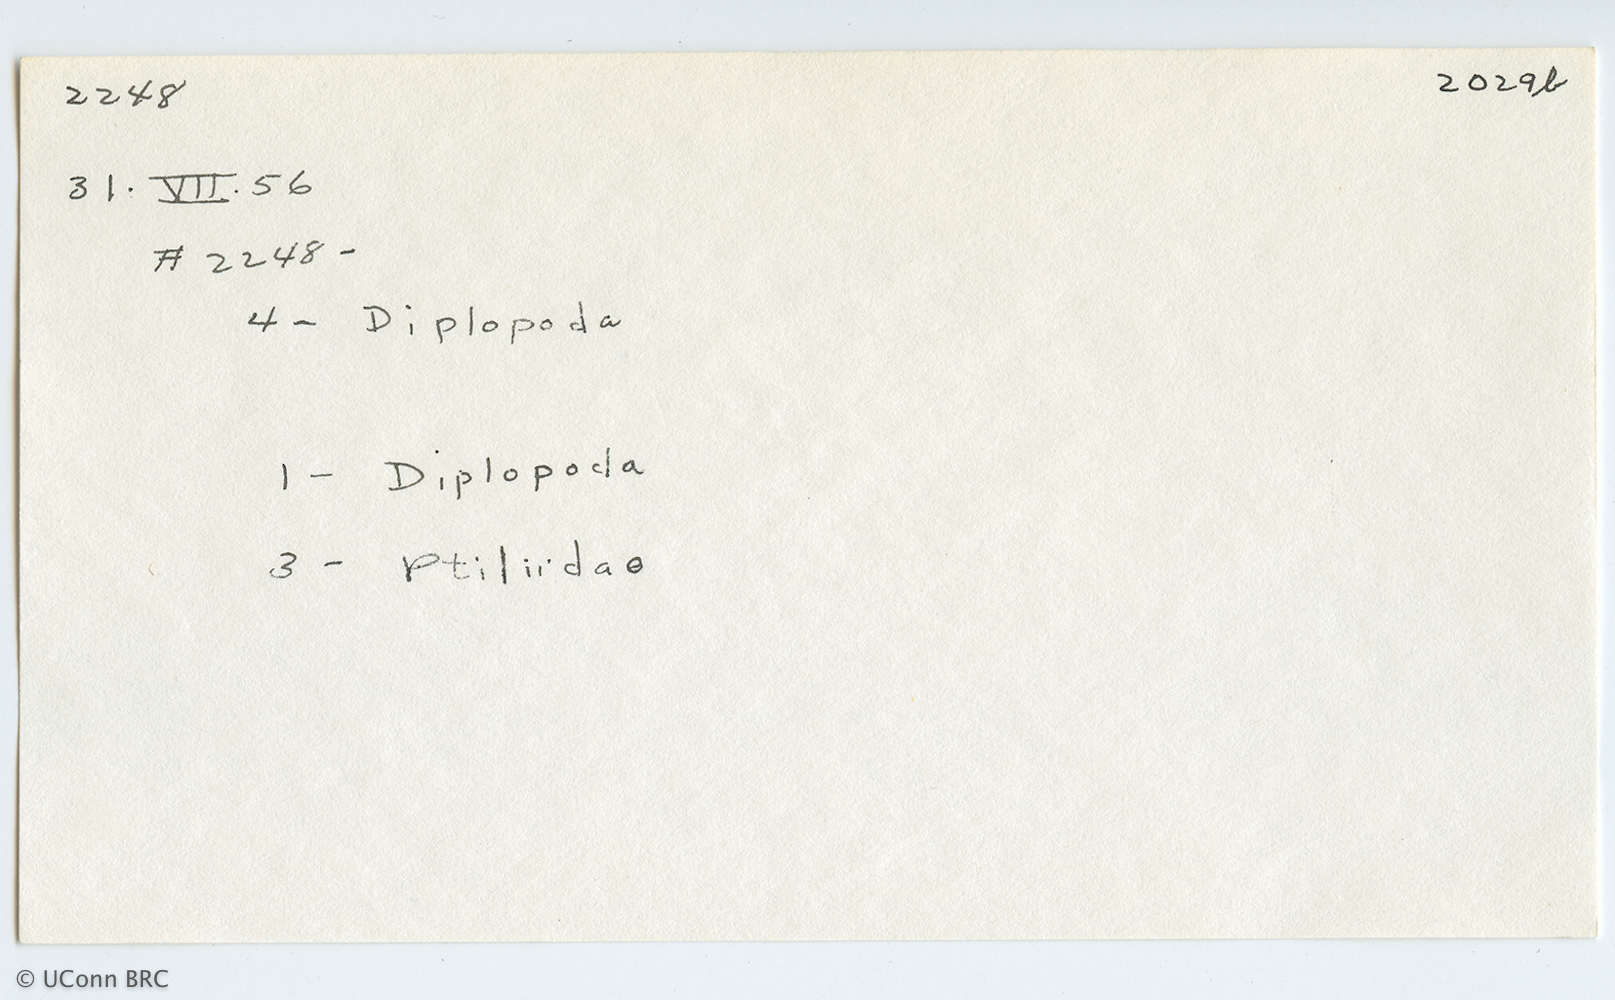 2248 2029b
31. VII. 56
# 2248 -
4 - Diplopoda
1 - Diplopoda
3 - Ptiliidae
© UConn BRC